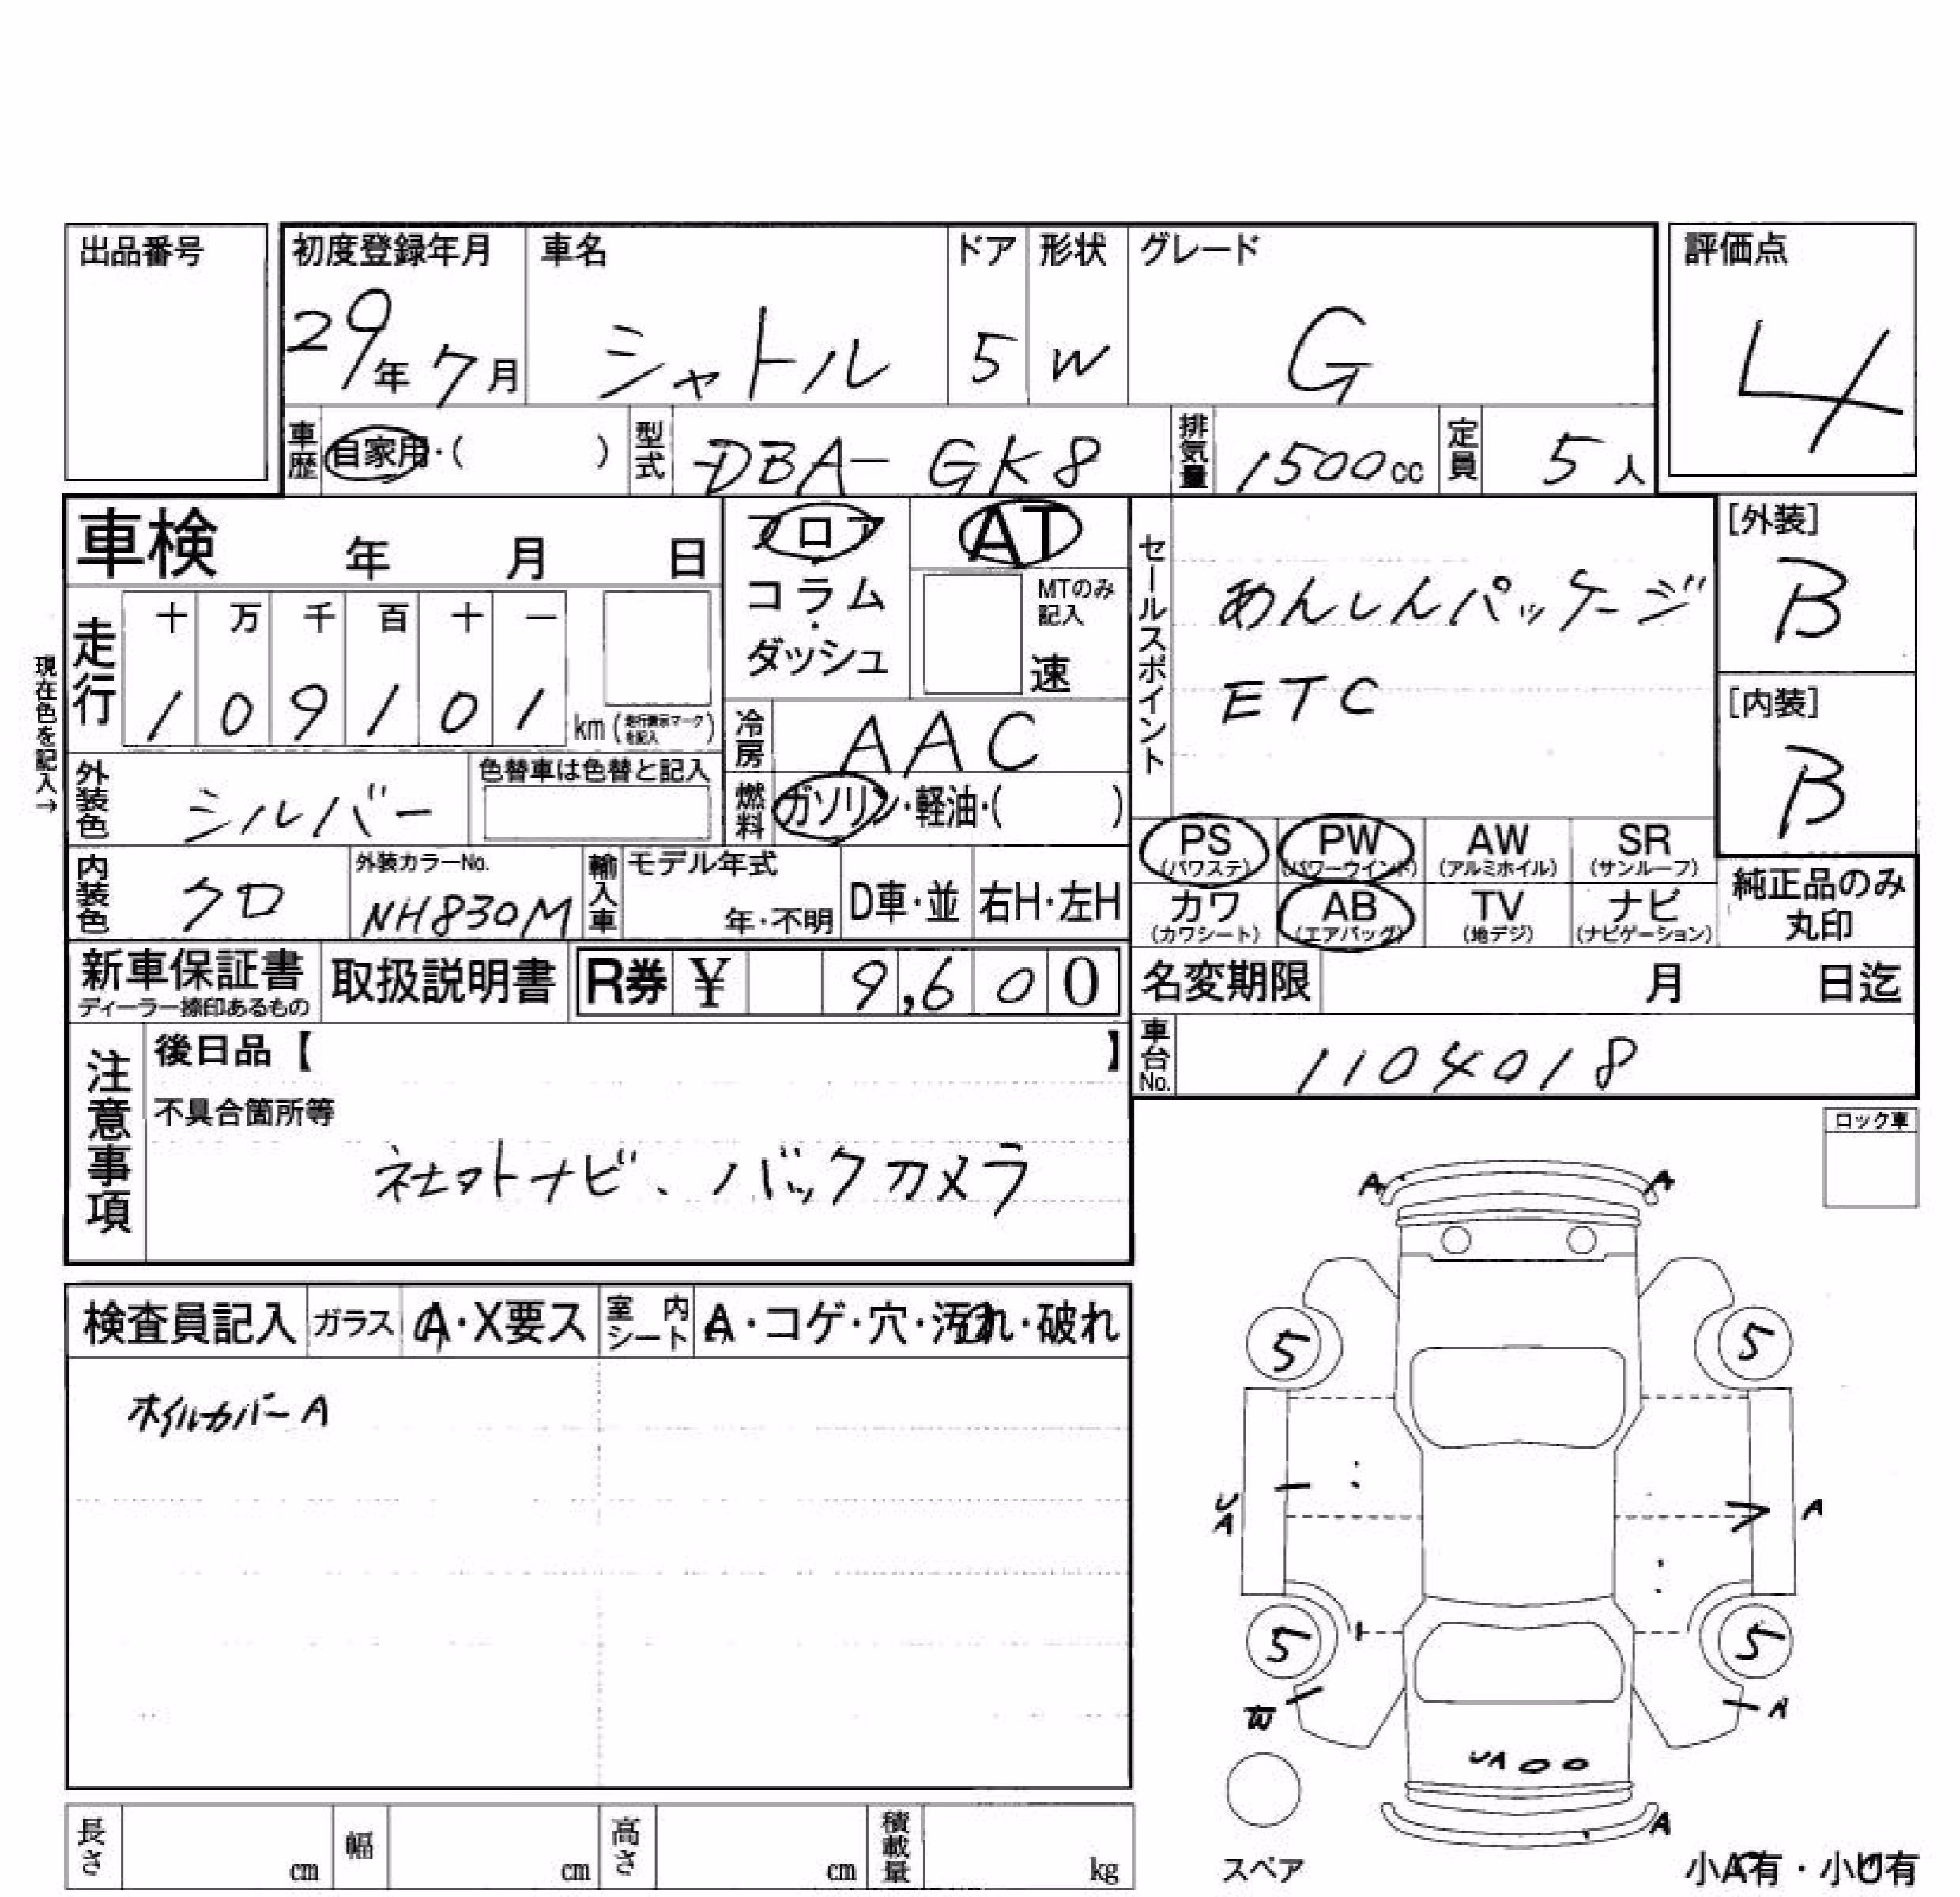 出品番号
初度登録年月 車名 ドア 形状 グレード 評価点
29年 7月 シャトル 5 W G 4
車歴 自家用・( ) 型式 DBA- GK8 排気量 1500cc 定員 5人
車検 年 月 日
フロア・コラム・ダッシュ
AT
MTのみ記入
速
セールスポイント
あんしんパッケージ
ETC
[外装]
B
[内装]
B
現在色を記入→
走行 十 万 千 百 十 一
1 0 9 1 0 1 km (走行表示マークを記入)
冷房 AAC
外装色 シルバー 色替車は色替と記入
燃料 ガソリン・軽油・( )
PS (パワステ) PW (パワーウインド) AW (アルミホイル) SR (サンルーフ)
カワ (カワシート) AB (エアバッグ) TV (地デジ) ナビ (ナビゲーション)
純正品のみ丸印
内装色 クロ 外装カラーNo. NH830M 輸入車 モデル年式 年・不明 D車・並 右H・左H
新車保証書 ディーラー捺印あるもの 取扱説明書 R券 ¥ 9,600
名変期限 月 日迄
車台No. 1104018
注意事項 後日品【 】
不具合箇所等
社外ナビ、バックカメラ
ロック車
検査員記入 ガラス A・X要ス 室内シート A・コゲ・穴・汚れ・破れ
ホイルカバーA
A A
5 5
UA A
5 5
A
UA
A
スペア
小A有・小U有
長さ cm 幅 cm 高さ cm 積載量 kg